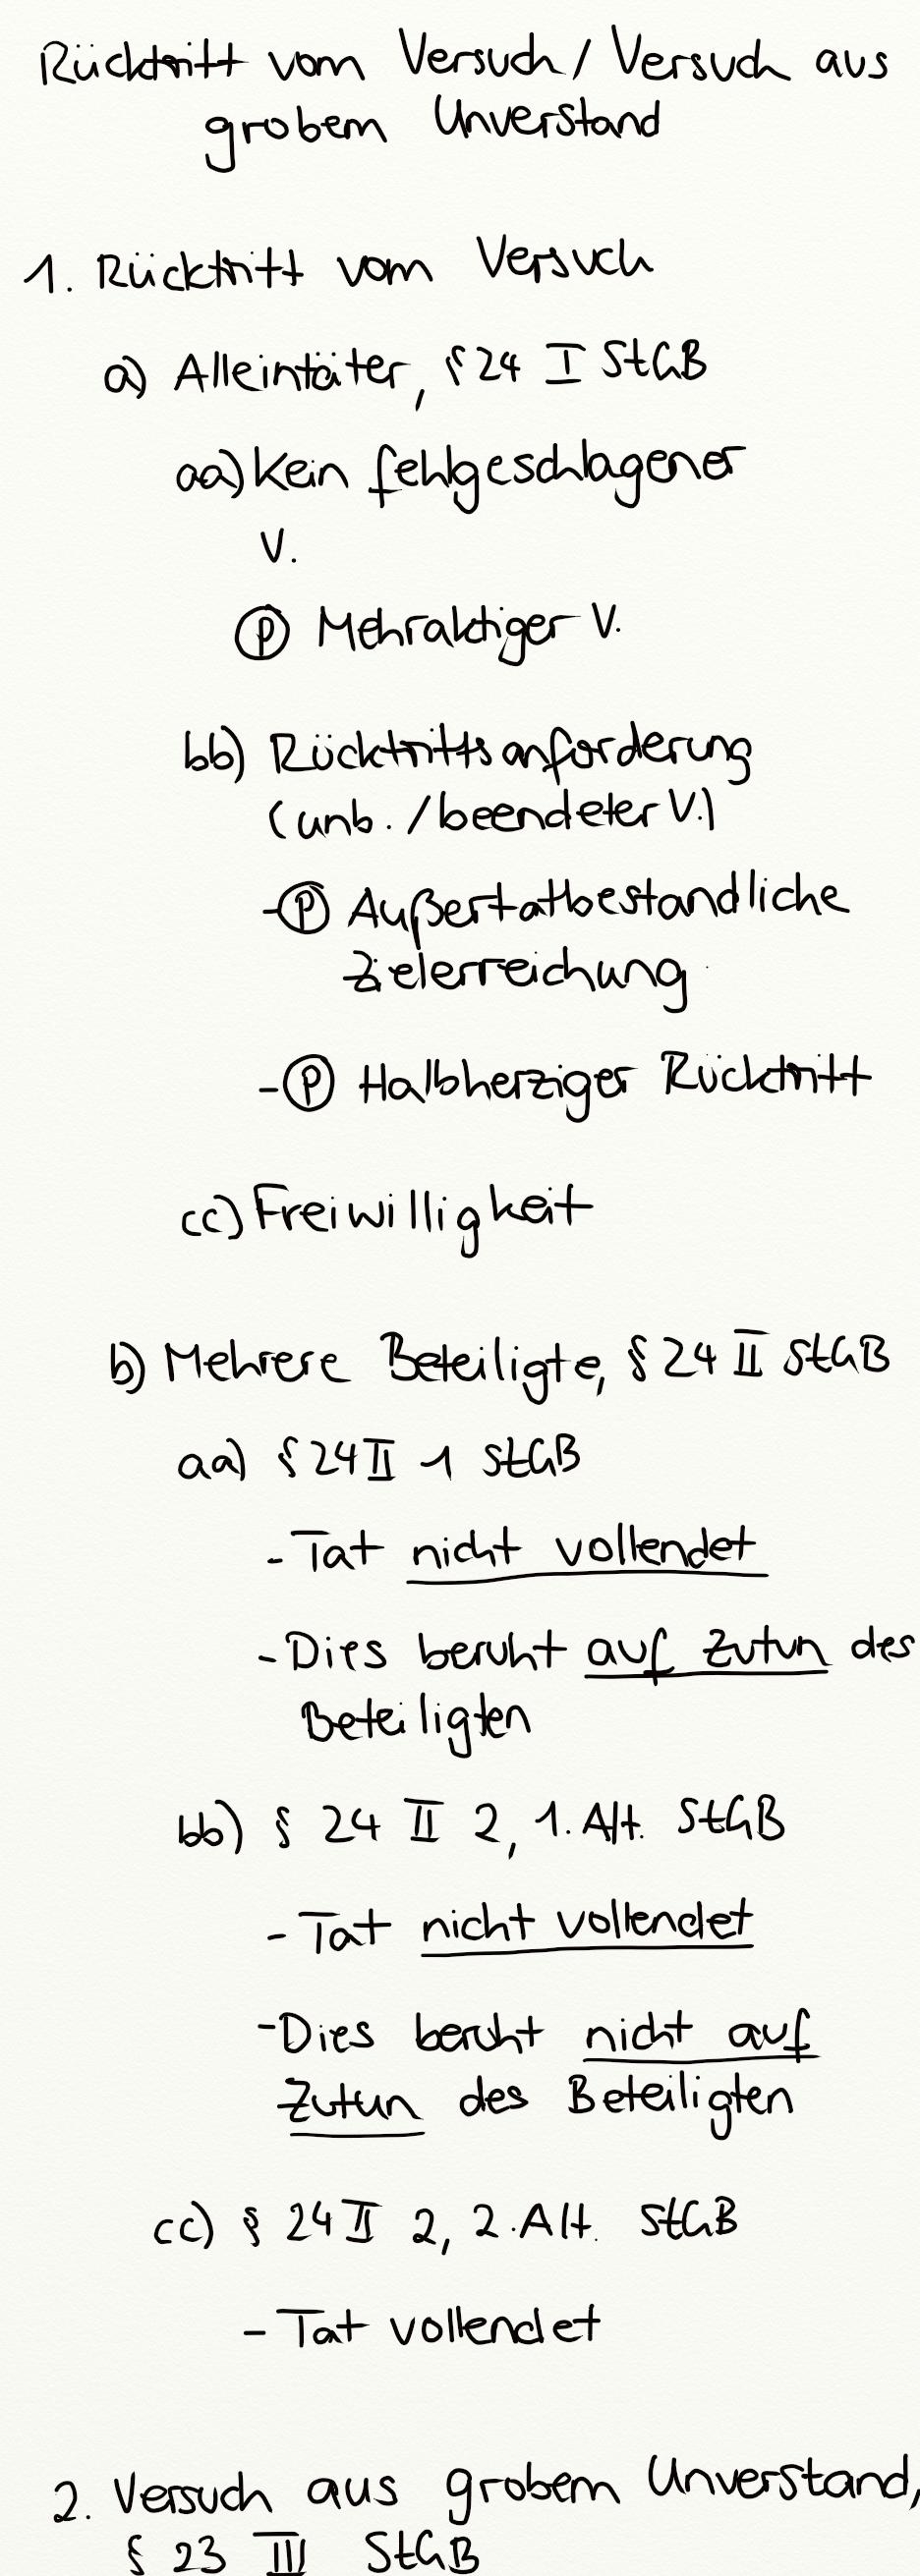 Rücktritt vom Versuch/Versuch aus
grobem Unverstand
1. Rücktritt vom Versuch
a) Alleintäter, § 24 I StGB
aa) Kein fehlgeschlagener
V.
Ⓟ Mehraktiger V.
bb) Rücktrittsanforderung
(unb./beendeter V.)
- Ⓟ Außertatbestandliche
Zielerreichung
- Ⓟ Halbherziger Rücktritt
cc) Freiwilligkeit
b) Mehrere Beteiligte, § 24 II StGB
aa) § 24 II 1 StGB
- Tat nicht vollendet
- Dies beruht auf Zutun des
Beteiligten
bb) § 24 II 2, 1. Alt. StGB
- Tat nicht vollendet
- Dies beruht nicht auf
Zutun des Beteiligten
cc) § 24 II 2, 2. Alt. StGB
- Tat vollendet
2. Versuch aus grobem Unverstand,
§ 23 III StGB